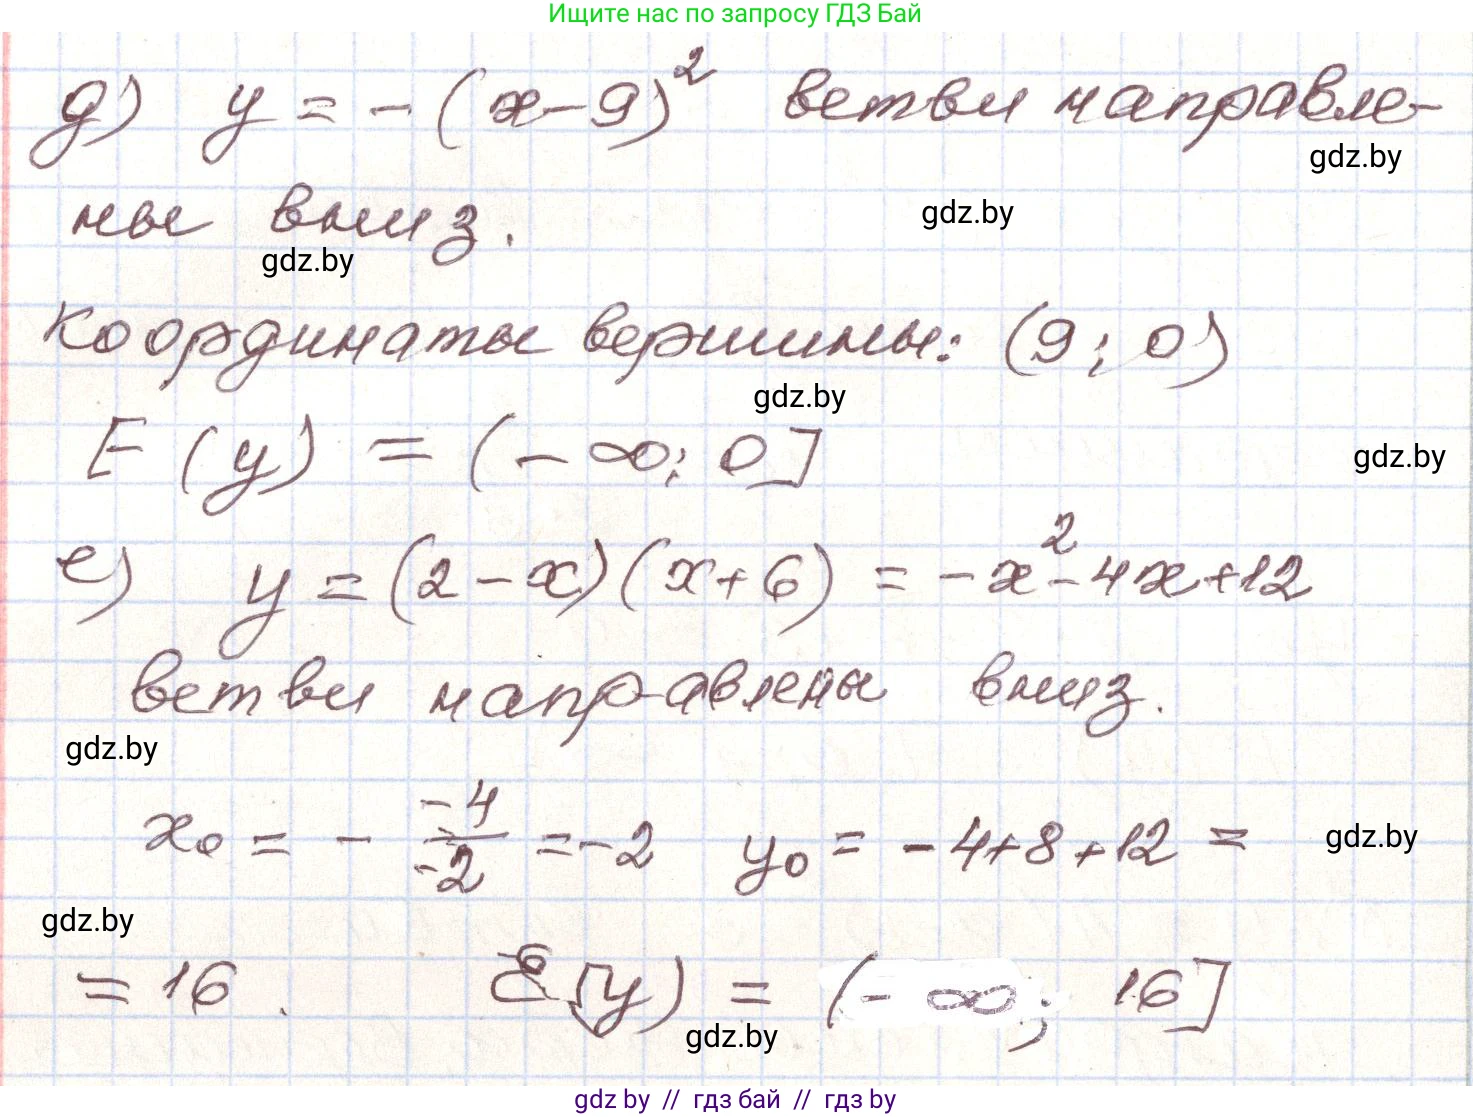 Ищите нас по запросу ГДЗ Бай
д) y = -(x-9)² ветви направле-
gdz.by
ны вниз.
gdz.by
gdz.by
Координаты вершины: (9; 0)
gdz.by
E(y) = (-∞; 0]
gdz.by
е) y = (2-x)(x+6) = -x²-4x+12
ветви направлены вниз.
gdz.by
x₀ = - \frac{-4}{-2} = -2 y₀ = -4+8+12 =
gdz.by
gdz.by
= 16. E(y) = (-∞; 16]
gdz.by
gdz by // гдз бай // гдз by